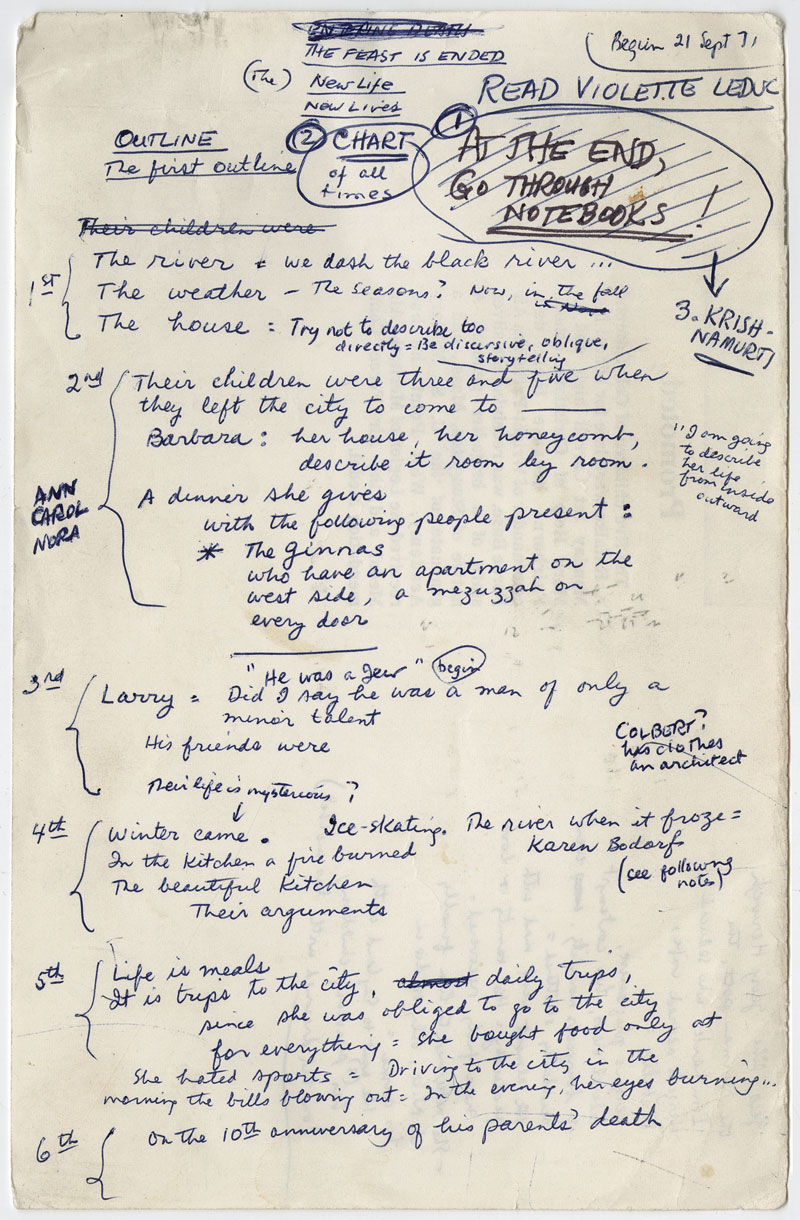 THE FEAST IS ENDED
(The) New Life
New Lives
Begin 21 Sept 71
READ VIOLETTE LEDUC
OUTLINE
The first outline
② CHART
of all
times
①
AT THE END,
GO THROUGH
NOTEBOOKS!
3. KRISH-
NAMURTI
Their children were
1st
The river = we dash the black river ...
The weather - The seasons? Now, in the fall
The house = Try not to describe too
directly = Be discursive, oblique,
storytelling
2nd
Their children were three and five when
they left the city to come to ______
Barbara: her house, her honeycomb,
describe it room by room.
"I am going
to describe
her life
from inside
outward
ANN
CAROL
NORA
A dinner she gives
with the following people present:
* The Ginnas
who have an apartment on the
west side, a mezuzzah on
every door
3rd
"He was a Jew" begin
Larry = Did I say he was a man of only a
minor talent
His friends were
COLBERT?
has clothes
an architect
Their life is mysterious?
4th
Winter came. Ice-skating. The river when it froze =
Karen Bodorfs
(see following
notes)
In the kitchen a fire burned
The beautiful kitchen
Their arguments
5th
Life is meals
It is trips to the city, almost daily trips,
since she was obliged to go to the city
for everything = she bought food only at
She hated sports = Driving to the city in the
morning the bills blowing out = In the evening, her eyes burning...
6th
On the 10th anniversary of his parents' death